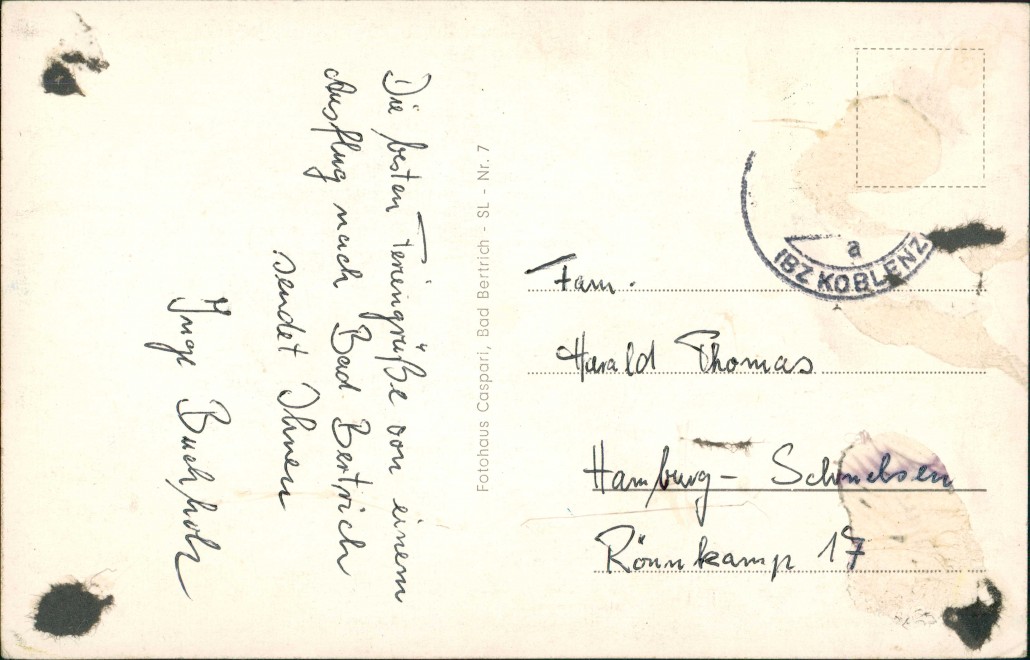 Die besten Feriengrüße von einem
Ausflug nach Bad Bertrich
sendet Ihnen
Inge Buchholz
Fotohaus Caspari, Bad Bertrich - SL - Nr. 7
a
(BZ KOBLENZ
Fam.
Harald Thomas
Hamburg - Schnelsen
Rönnkamp 17